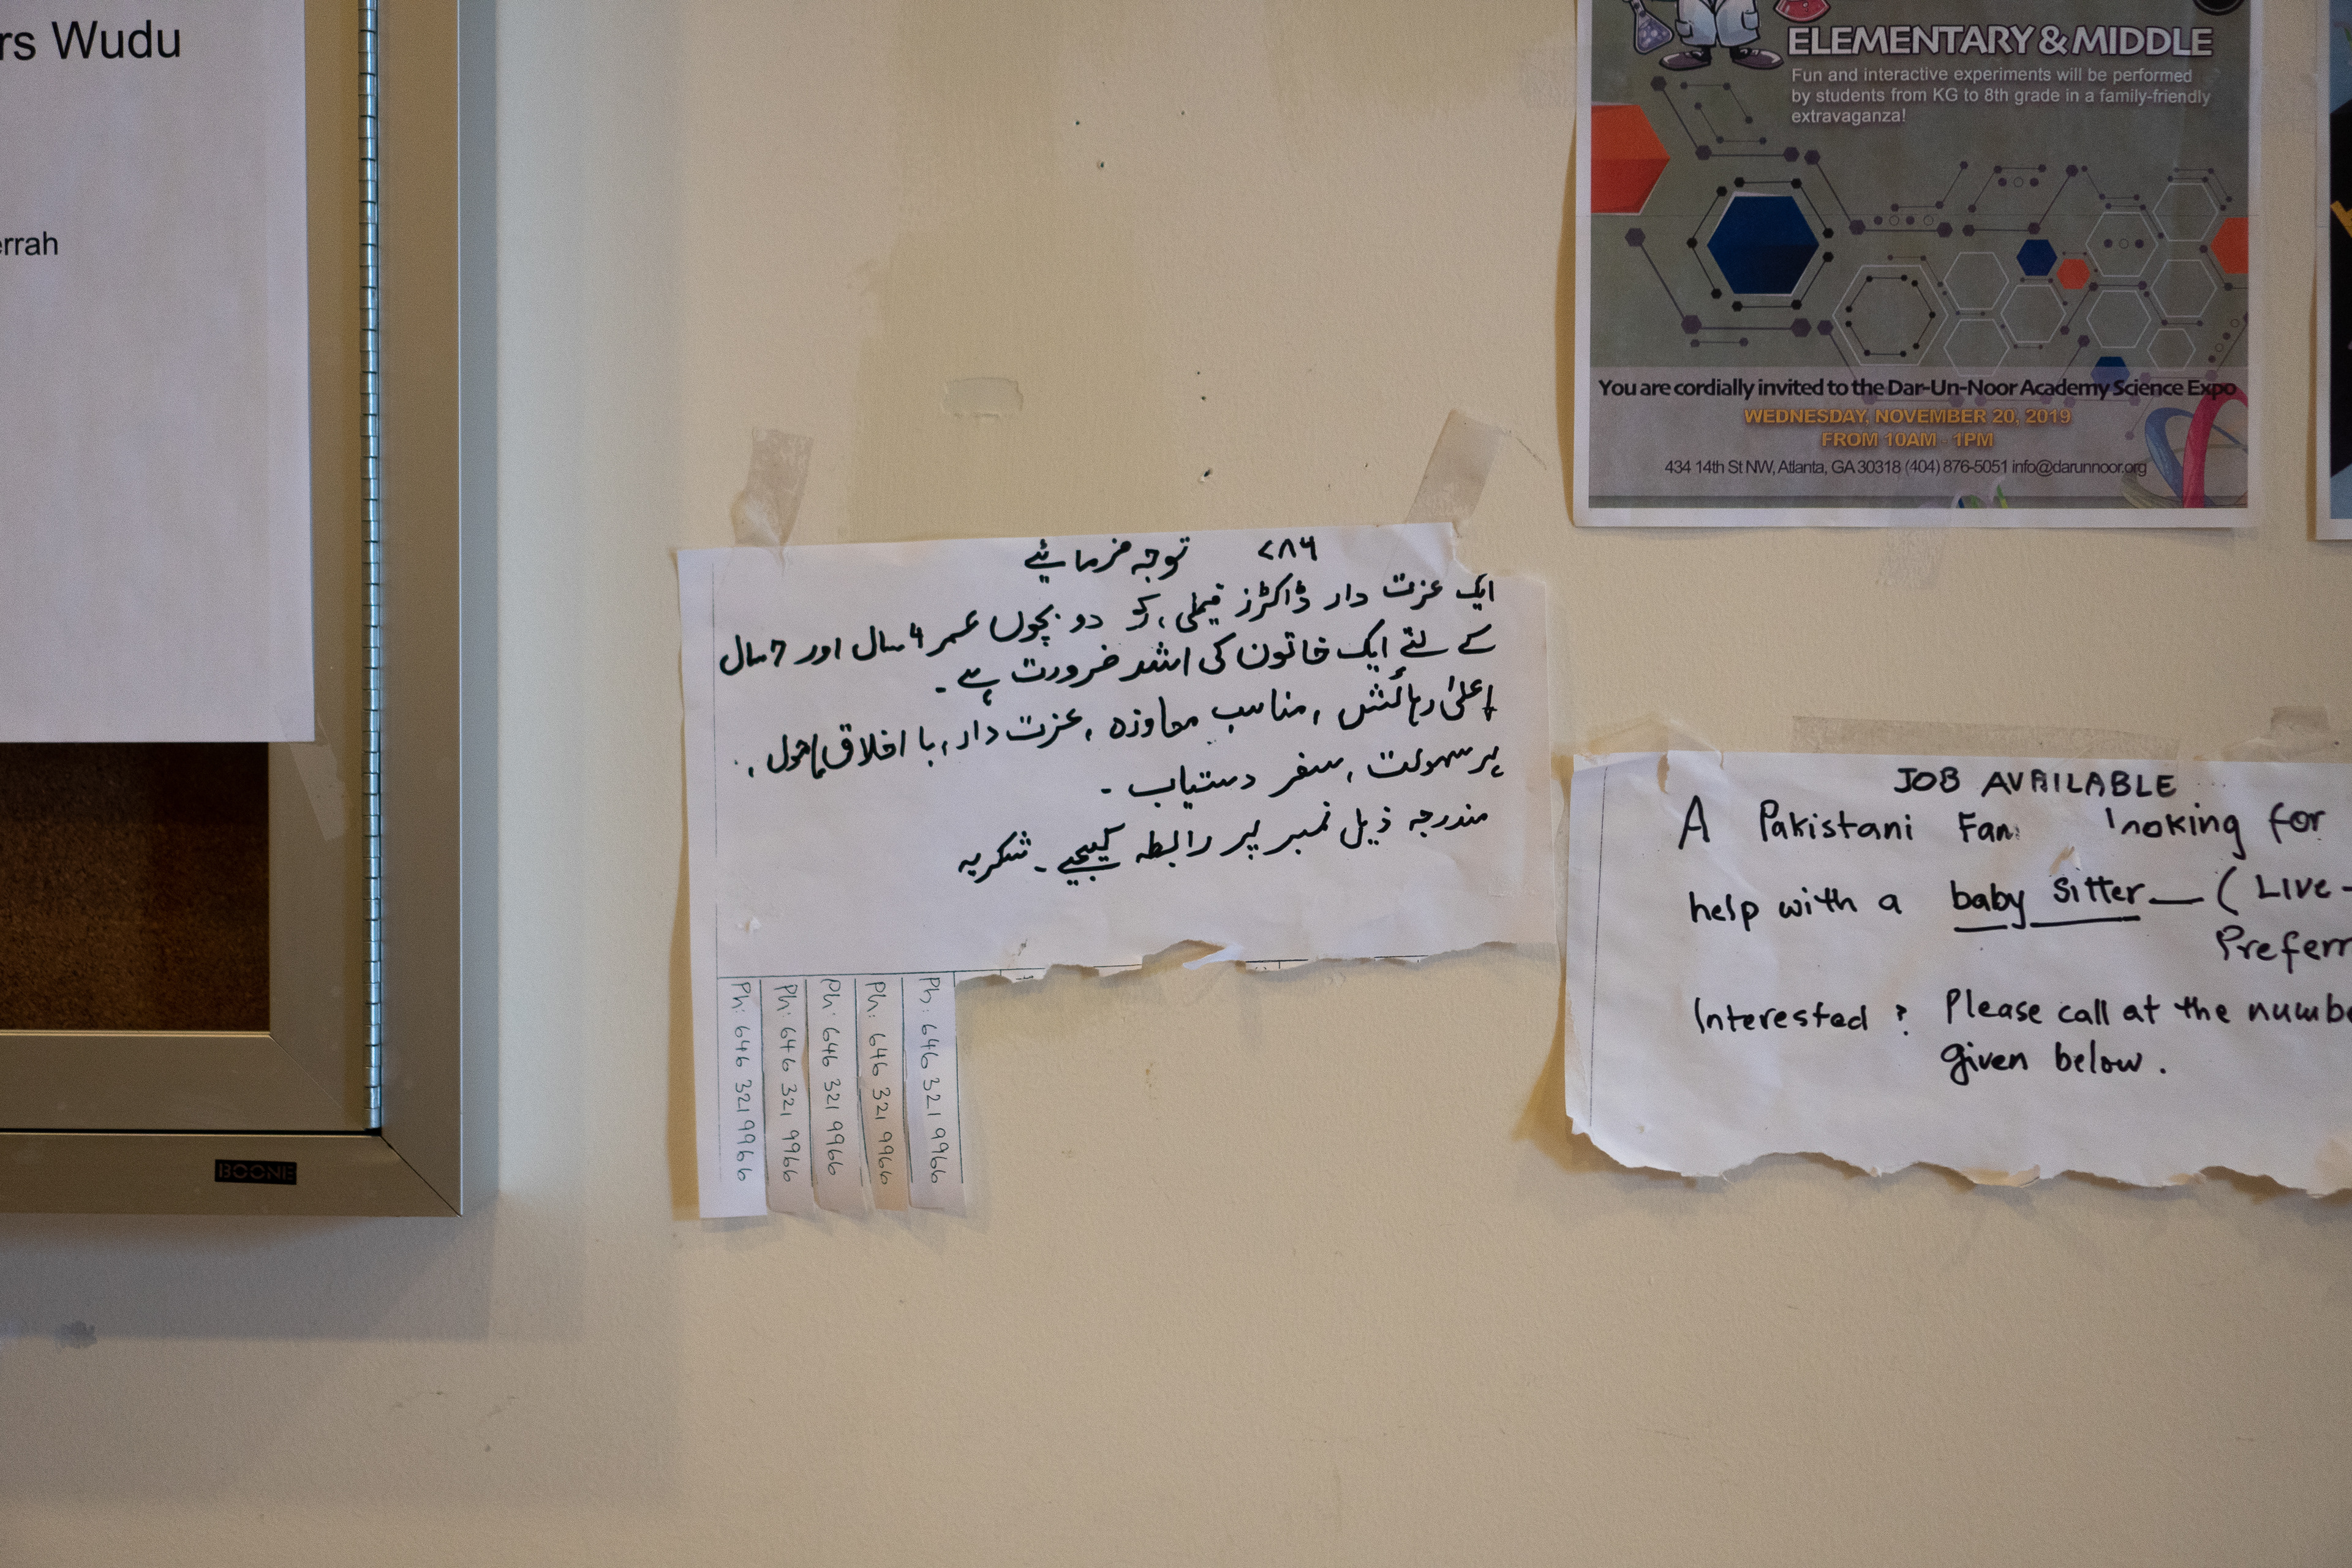 rs Wudu
errah
BOONE
ELEMENTARY & MIDDLE
Fun and interactive experiments will be performed
by students from KG to 8th grade in a family-friendly
extravaganza!
You are cordially invited to the Dar-Un-Noor Academy Science Expo
WEDNESDAY, NOVEMBER 20, 2019
FROM 10AM - 1PM
434 14th St NW, Atlanta, GA 30318 (404) 876-5051 info@darunnoor.org
۷۸۶ توجہ فرمائیے
ایک عزت دار ڈاکٹرز فیملی، کو دو بچوں عمر 4 سال اور 7 سال
کے لئے ایک خاتون کی اشد ضرورت ہے۔
اعلیٰ رہائش، مناسب معاوزہ، عزت دار، با اخلاق ماحول،
پر سہولت، سفر دستیاب۔
مندرجہ ذیل نمبر پر رابطہ کیجیے۔ شکریہ
Ph: 646 321 9966
Ph: 646 321 9966
Ph: 646 321 9966
Ph: 646 321 9966
Ph: 646 321 9966
JOB AVAILABLE
A Pakistani Fam looking for
help with a baby sitter — (Live-
Preferr
Interested ? Please call at the numbe
given below.